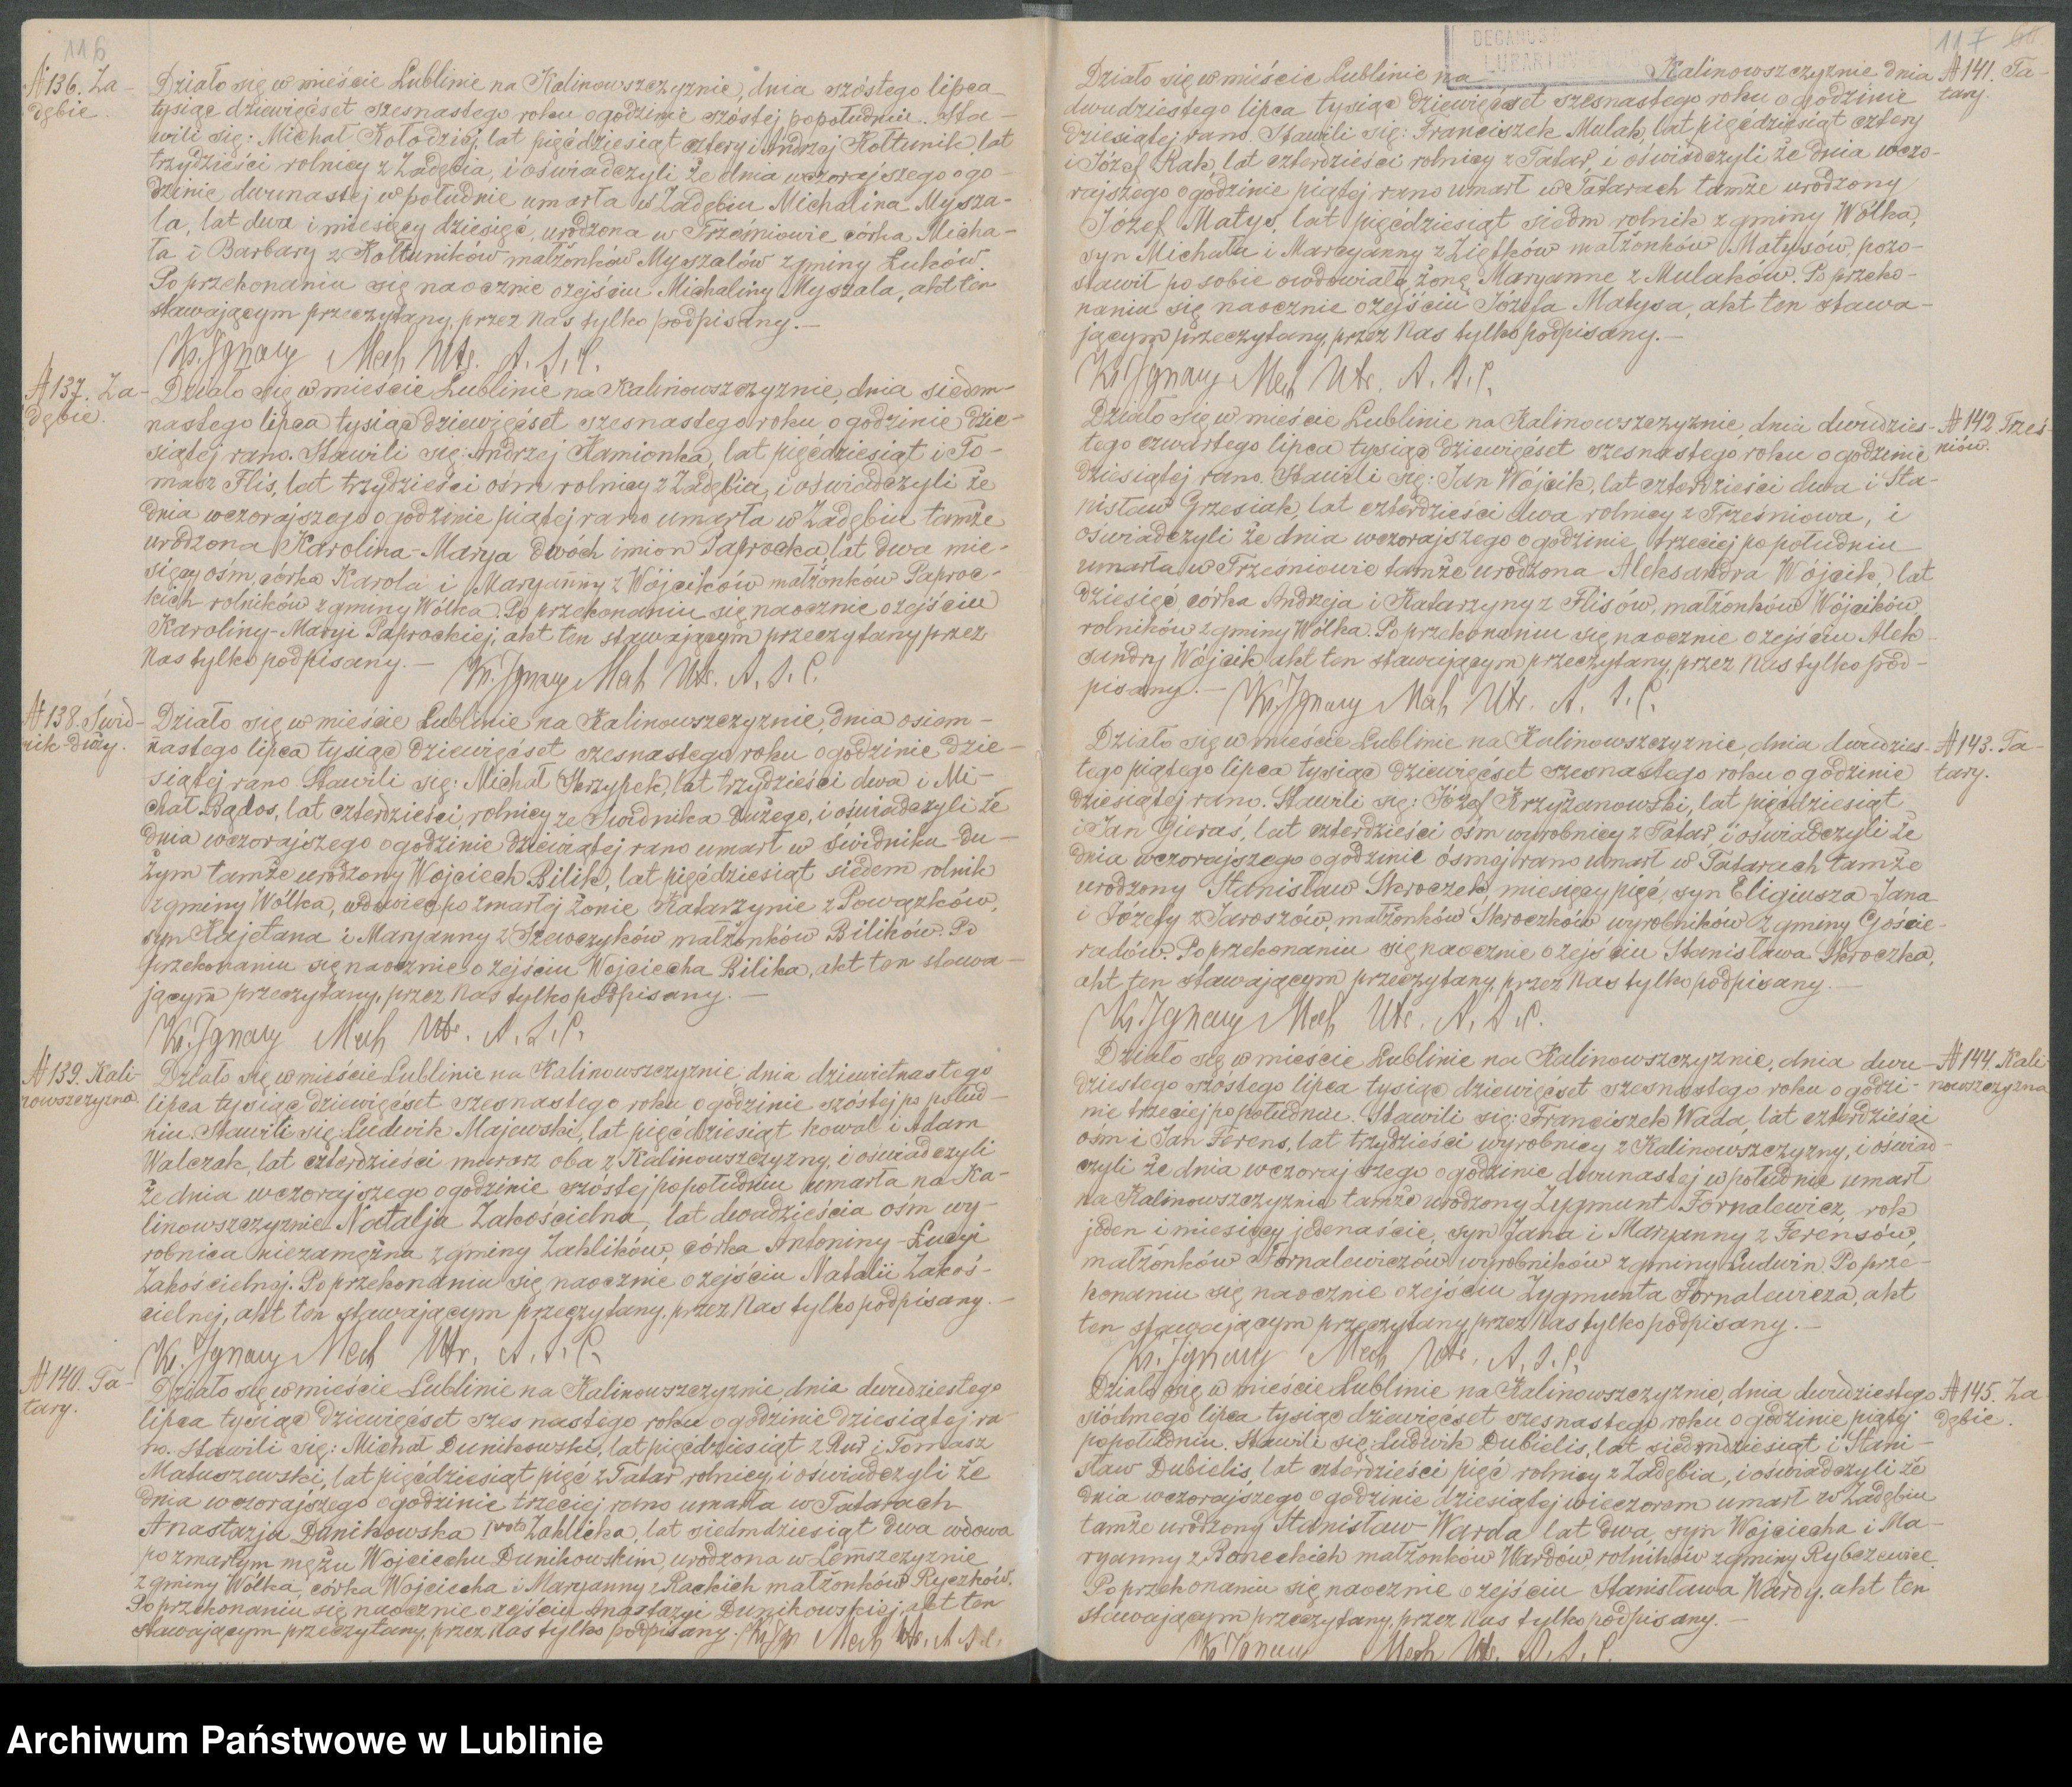 116
№136. Za-
dębie.
Działo się w mieście Lublinie na Kalinowszczyźnie, dnia szóstego lipca
tysiąc dziewięćset szesnastego roku o godzinie szóstej popołudniu. Sta-
wili się: Michał Kołodziej, lat pięćdziesiąt cztery i Andrzej Kołtunik, lat
trzydzieści rolnicy z Zadębia, i oświadczyli że dnia wczorajszego o go-
dzinie dwunastej w południe umarła w Zadębiu Michalina Mysza-
la, lat dwa i miesięcy dziesięć, urodzona w Trześniowie córka Micha-
ła i Barbary z Kołtuników małżonków Myszalów z gminy Łuków.
Po przekonaniu się naocznie o zejściu Michaliny Myszala, akt ten
stawającym przeczytany, przez Nas tylko podpisany.—
Ks. Ignacy Mech Utr. A. S. C.
№137. Za-
dębie.
Działo się w mieście Lublinie na Kalinowszczyznie, dnia siedm-
nastego lipca tysiąc dziewięćset szesnastego roku o godzinie dzie-
siątej rano. Stawili się: Andrzej Kamionka, lat pięćdziesiąt i To-
masz Flis, lat trzydzieści ośm rolnicy z Zadębia, i oświadczyli że
dnia wczorajszego o godzinie piątej rano umarła w Zadębiu tamże
urodzona Karolina-Marya dwóch imion Paprocka, lat dwa mie-
sięcy ośm, córka Karola i Maryanny z Wójcików małżonków Paproc-
kich rolników z gminy Wólka. Po przekonaniu się naocznie o zejściu
Karoliny-Maryi Paprockiej, akt ten stawającym przeczytany przez
Nas tylko podpisany.— Ks. Ignacy Mech Utr. A. S. C.
№138. Świd-
nik-duży.
Działo się w mieście Lublinie na Kalinowszczyznie, dnia osiem-
nastego lipca tysiąc dziewięćset szesnastego roku o godzinie dzie-
siątej rano. Stawili się: Michał Skrzypek, lat trzydzieści dwa i Mi-
chał Bądos, lat czterdzieści, rolnicy ze Świdnika-Dużego, i oświadczyli że
dnia wczorajszego o godzinie dziewiątej rano umarł w Świdniku-du-
żym tamże urodzony Wojciech Bilik, lat pięćdziesiąt siedem rolnik
z gminy Wólka, wdowiec po zmarłej żonie Katarzynie z Powązków,
syn Kajetana i Maryanny z Szewczyków małżonków Bilików. Po
przekonaniu się naocznie o zejściu Wojciecha Bilika, akt ten stawa-
jącym przeczytany, przez Nas tylko podpisany.—
Ks. Ignacy Mech Utr. A. S. C.
№139. Kali-
nowszczyzna.
Działo się w mieście Lublinie na Kalinowszczyznie dnia dziewiętnastego
lipca tysiąc dziewięćset szesnastego roku o godzinie szóstej po połud-
niu. Stawili się: Ludwik Majewski, lat pięćdziesiąt kowal i Adam
Walczak, lat czterdzieści murarz oba z Kalinowszczyzny, i oświadczyli
że dnia wczorajszego o godzinie szóstej popołudniu umarła na Ka-
linowszczyznie Natalja Zakościelna, lat dwadzieścia ośm wy-
robnica niezamężna z gminy Zaklików, córka Antoniny-Łucyi
Zakościelnej. Po przekonaniu się naocznie o zejściu Natalii Zakoś-
cielnej, akt ten stawającym przeczytany, przez Nas tylko podpisany.—
Ks. Ignacy Mech Utr. A. S. C.
№140. Ta-
tary.
Działo się w mieście Lublinie na Kalinowszczyznie, dnia dwudziestego
lipca tysiąc dziewięćset szesnastego roku o godzinie dziesiątej ra-
no. Stawili się: Michał Dunikowski, lat pięćdziesiąt z Rur i Tomasz
Matuszewski, lat pięćdziesiąt pięć z Tatar, rolnicy, i oświadczyli że
dnia wczorajszego o godzinie trzeciej rano umarła w Tatarach
Anastazja Dunikowska Ivoto Zahlicka, lat siedmdziesiąt dwa wdowa
po zmarłym mężu Wojciechu Dunikowskim, urodzona w Lemszczyznie
z gminy Wólka, córka Wojciecha i Maryanny z Rackich małżonków Ryczków.
Po przekonaniu się naocznie o zejściu Anastazyi Dunikowskiej, akt ten
stawającym przeczytany, przez Nas tylko podpisany. Ks. Ign Mech Utr. A. S. C.
DECANUS
LUBART
117 60
№141. Ta-
tary.
Działo się w mieście Lublinie na Kalinowszczyznie dnia
dwudziestego lipca tysiąc dziewięćset szesnastego roku o godzinie
dziesiątej rano. Stawili się: Franciszek Mulak, lat pięćdziesiąt cztery
i Józef Rak, lat czterdzieści rolnicy z Tatar, i oświadczyli że dnia wczo-
rajszego o godzinie piątej rano umarł w Tatarach tamże urodzony
Józef Matys, lat pięćdziesiąt siedm rolnik z gminy Wólka,
syn Michała i Maryanny z Ziętków małżonków Matysów, pozo-
stawił po sobie owdowiałą żonę Maryannę z Mulaków. Po przeko-
naniu się naocznie o zejściu Józefa Matysa, akt ten stawa-
jącym przeczytany, przez Nas tylko podpisany.—
Ks. Ignacy Mech Utr. A. S. C.
№142. Trześ-
niów.
Działo się w mieście Lublinie na Kalinowszczyznie, dnia dwudzies-
tego czwartego lipca tysiąc dziewięćset szesnastego roku o godzinie
dziesiątej rano. Stawili się: Jan Wójcik, lat czterdzieści dwa i Sta-
nisław Grzesiak, lat czterdzieści dwa rolnicy z Trześniowa, i
oświadczyli że dnia wczorajszego o godzinie trzeciej po południu
umarła w Trześniowie tamże urodzona Aleksandra Wójcik, lat
dziesięć, córka Andrzeja i Katarzyny z Flisów, małżonków Wójcików,
rolników z gminy Wólka. Po przekonaniu się naocznie o zejściu Alek-
sandry Wójcik, akt ten stawającym przeczytany, przez Nas tylko pod-
pisany.— Ks. Ignacy Mech Utr. A. S. C.
№143. Ta-
tary.
Działo się w mieście Lublinie na Kalinowszczyznie, dnia dwudzies-
tego piątego lipca tysiąc dziewięćset szesnastego roku o godzinie
dziesiątej rano. Stawili się: Józef Krzyżanowski, lat pięćdziesiąt
i Jan Gieraś, lat czterdzieści ośm wyrobnicy z Tatar, i oświadczyli że
dnia wczorajszego o godzinie ósmej rano umarł w Tatarach tamże
urodzony Stanisław Skroczek miesięcy pięć, syn Eligiusza-Jana
i Józefy z Jaroszów, małżonków Skroczków wyrobników z gminy Goście-
radów. Po przekonaniu się naocznie o zejściu Stanisława Skroczka,
akt ten stawającym przeczytany, przez Nas tylko podpisany.—
Ks. Ignacy Mech Utr. A. S. C.
№144. Kali-
nowszczyzna
Działo się w mieście Lublinie na Kalinowszczyznie, dnia dwu-
dziestego szóstego lipca tysiąc dziewięćset szesnastego roku o godzi-
nie trzeciej po południu. Stawili się: Franciszek Wada, lat czterdzieści
ośm i Jan Ferens, lat trzydzieści wyrobnicy z Kalinowszczyzny, i oświad-
czyli że dnia wczorajszego o godzinie dwunastej w południe umarł
na Kalinowszczyznie tamże urodzony Zygmunt Fornalewicz, rok
jeden i miesięcy jedenaście, syn Jana i Maryanny z Ferensów,
małżonków Fornalewiczów wyrobników z gminy Ludwin. Po prze-
konaniu się naocznie o zejściu Zygmunta Fornalewicza, akt
ten stawającym przeczytany, przez Nas tylko podpisany.—
Ks. Ignacy Mech Utr. A. S. C.
№145. Za-
dębie.
Działo się w mieście Lublinie na Kalinowszczyznie, dnia dwudziestego
siódmego lipca tysiąc dziewięćset szesnastego roku o godzinie piątej
popołudniu. Stawili się: Ludwik Dubielis, lat siedmdziesiąt i Stani-
sław Dubielis, lat czterdzieści pięć rolnicy z Zadębia, i oświadczyli że
dnia wczorajszego o godzinie dziesiątej wieczorem umarł w Zadębiu
tamże urodzony Stanisław Warda lat dwa, syn Wojciecha i Ma-
ryanny z Boneckich małżonków Wardów, rolników z gminy Rybczewice.
Po przekonaniu się naocznie o zejściu Stanisława Wardy, akt ten
stawającym przeczytany, przez Nas tylko podpisany.—
Ks. Ignacy Mech Utr. A. S. C.
Archiwum Państwowe w Lublinie